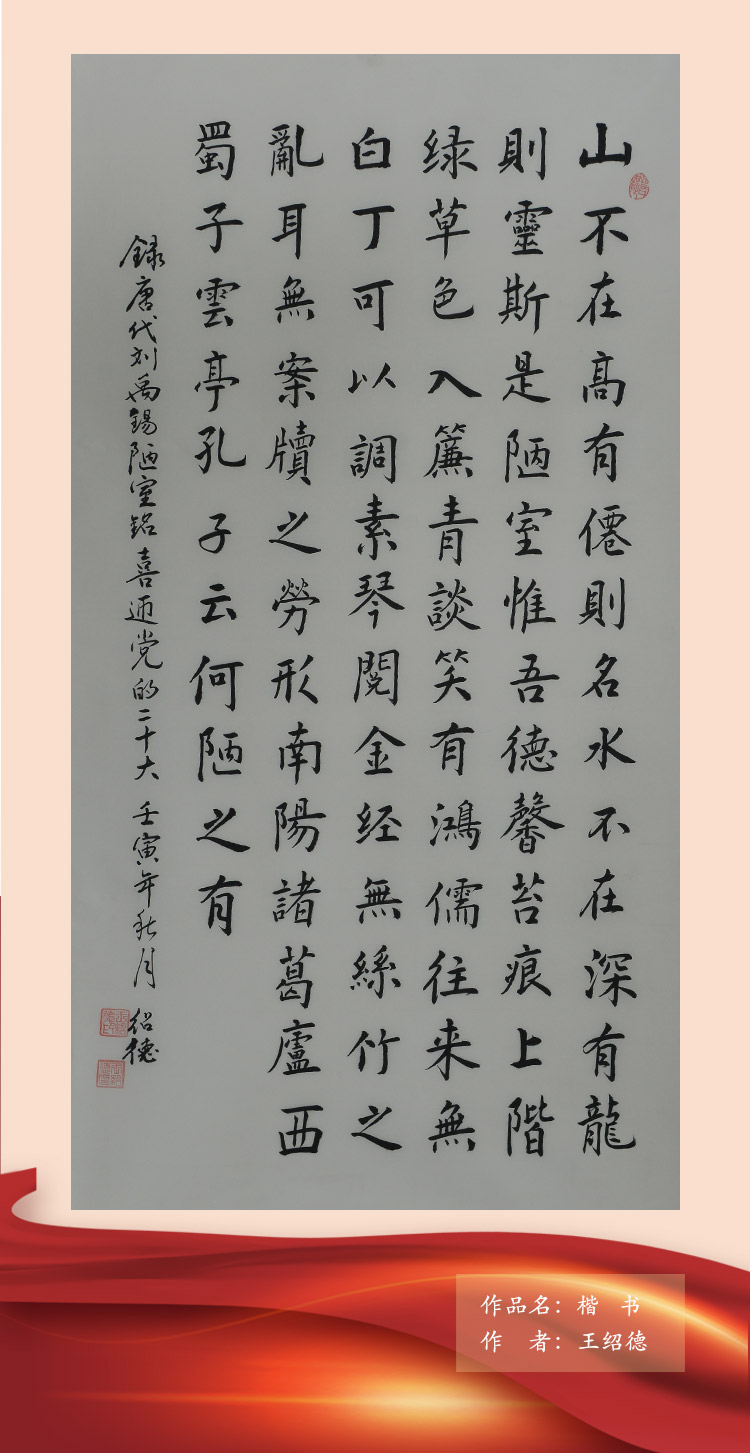 山不在高有僊則名水不在深有龍
則靈斯是陋室惟吾德馨苔痕上階
绿草色入簾青談笑有鴻儒往来無
白丁可以調素琴閱金经無絲竹之
亂耳無案牘之勞形南陽諸葛廬西
蜀子雲亭孔子云何陋之有
録唐代刘禹锡陋室铭喜迎党的二十大 壬寅年秋月 绍德
作品名：楷 书
作 者：王绍德